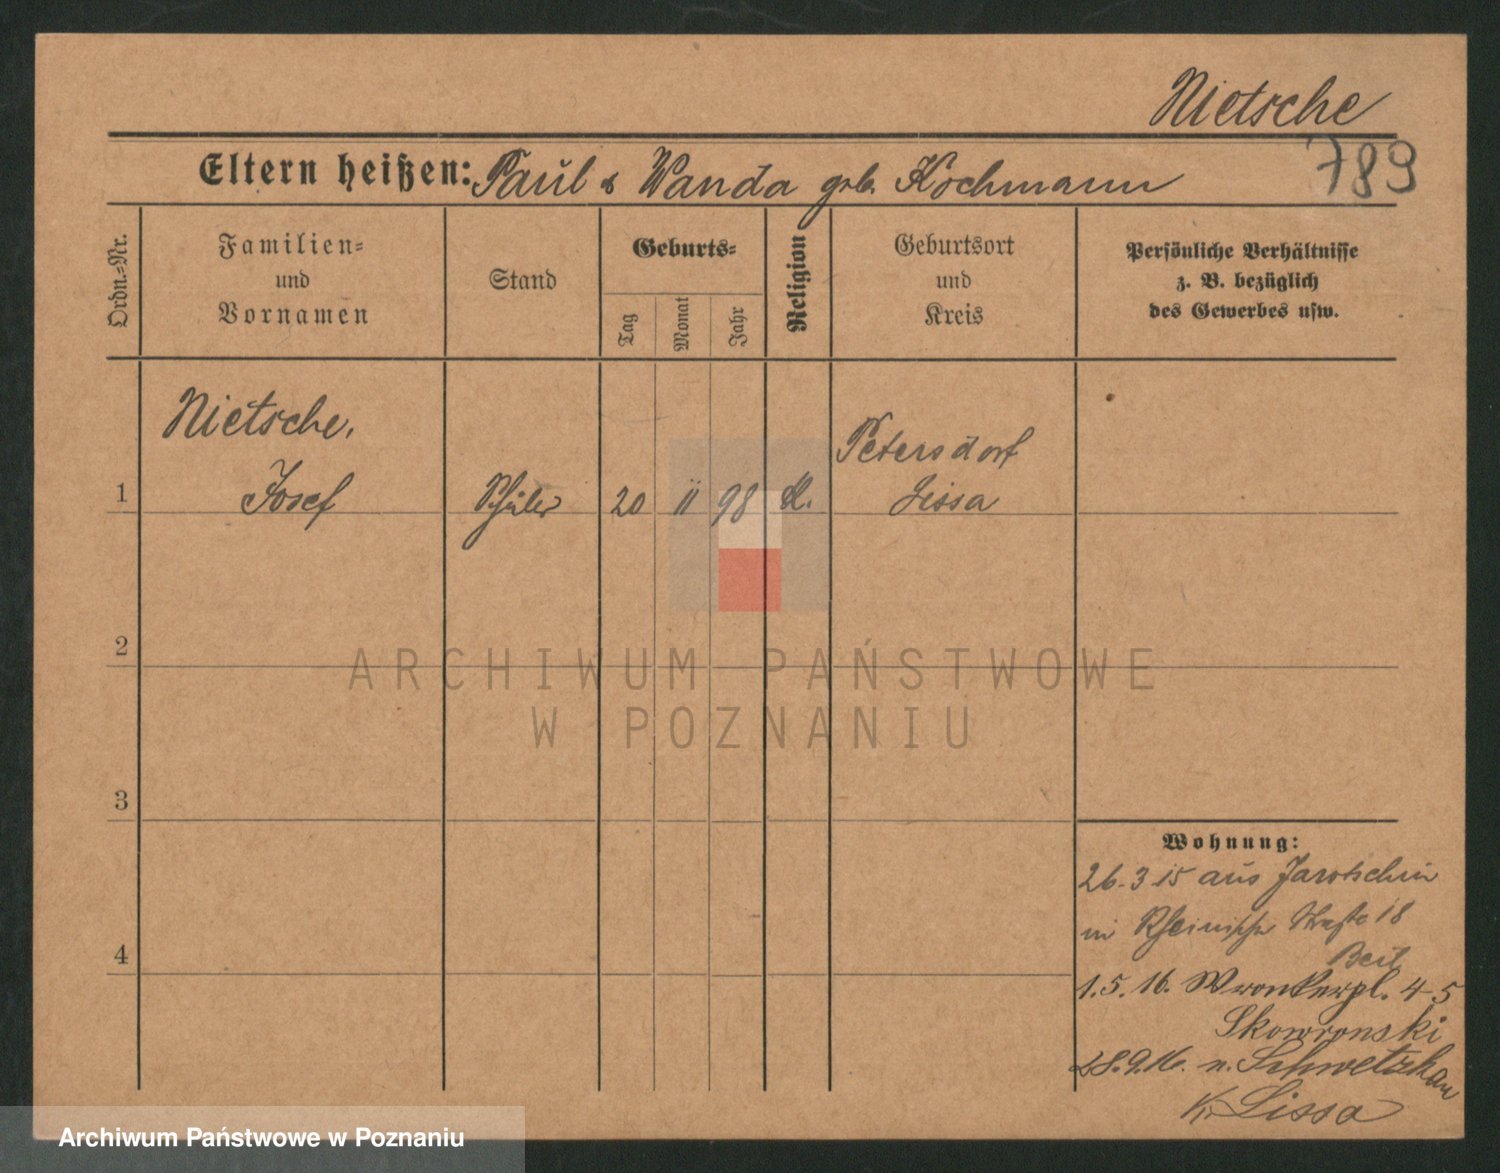 Nietsche
789
Eltern heißen: Paul & Wanda geb. Kochmann
Ordn.-Nr.
Familien-
und
Vornamen
Stand
Geburts-
Tag
Monat
Jahr
Religion
Geburtsort
und
Kreis
Persönliche Verhältnisse
z. B. bezüglich
des Gewerbes usw.
Nietsche,
1 Josef Schüler 20 11 98 K.
Petersdorf
Lissa
2
3
4
Wohnung:
26.3.15 aus Jarotschin
in Rheinische Straße 18
1.5.16. Wronkerpl. 4-5
Skowronski
28.9.16. n. Schwetzkau
Kr Lissa
ARCHIWUM PAŃSTWOWE
W POZNANIU
Archiwum Państwowe w Poznaniu